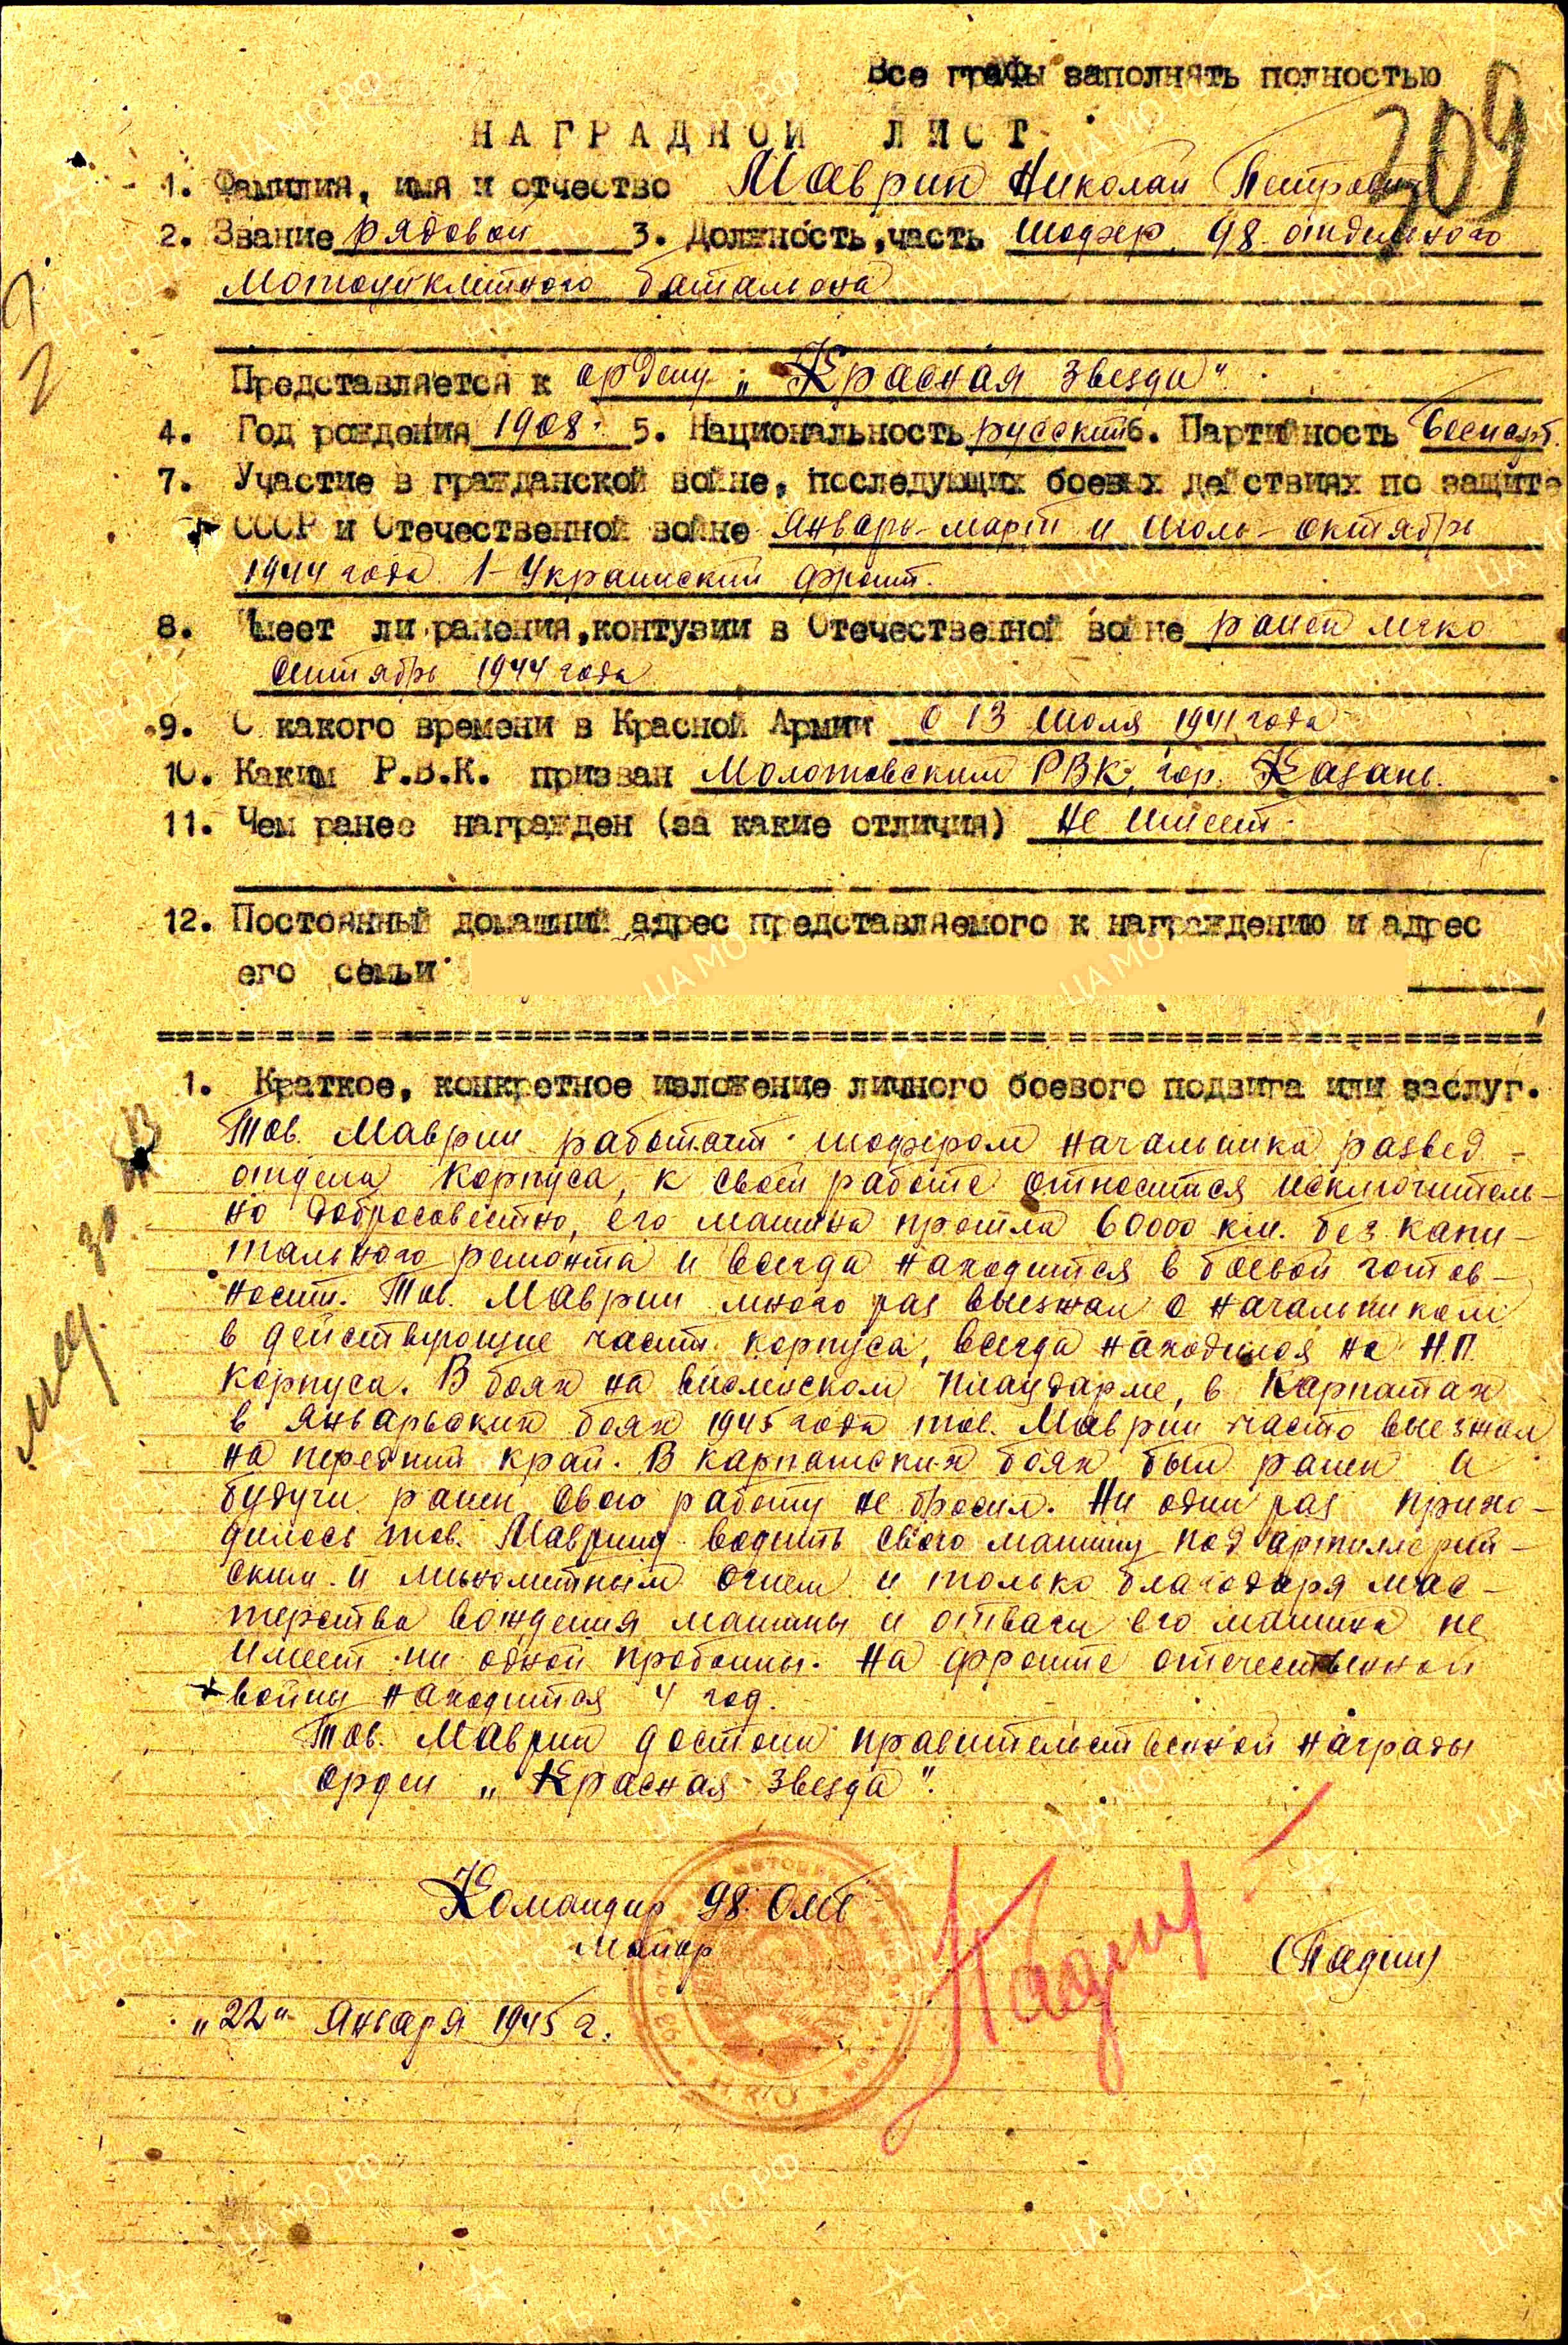 Все графы заполнять полностью
309
НАГРАДНОЙ ЛИСТ
1. Фамилия, имя и отчество Маврин Николай Петрович
2. Звание рядовой 3. Должность, часть шофер 98 отдельного
мотоциклетного батальона
Представляется к ордену „Красная Звезда"
4. Год рождения 1908 г. 5. Национальность русский 6. Партийность беспарт.
7. Участие в гражданской войне, последующих боевых действиях по защите
СССР и Отечественной войне январь-март и июль-октябрь
1944 года 1-Украинский фронт.
8. Имеет ли ранения, контузии в Отечественной войне ранен легко
сентябрь 1944 года
9. С какого времени в Красной Армии с 13 июля 1941 года
10. Каким Р.В.К. призван Молотовским РВК, гор. Казань.
11. Чем ранее награжден (за какие отличия) не имеет.
12. Постоянный домашний адрес представляемого к награждению и адрес
его семьи
1. Краткое, конкретное изложение личного боевого подвига или заслуг.
Тов. Маврин работает шофером начальника развед-
отдела корпуса, к своей работе относится исключитель-
но добросовестно, его машина прошла 60000 км. без капи-
тального ремонта и всегда находится в боевой готов-
ности. Тов. Маврин много раз выезжал с начальником
в действующие части корпуса, всегда находился на Н.П.
корпуса. В боях на висленском плацдарме, в Карпатах
в январьских боях 1945 года тов. Маврин часто выезжал
на передний край. В карпатских боях был ранен и
будучи ранен свою работу не бросил. Ни один раз прихо-
дилось тов. Маврину водить свою машину под артиллерий-
ским и минометным огнем и только благодаря мас-
терства вождения машины и отваги его машина не
имеет ни одной пробоины. На фронте отечественной
войны находится 4 год.
Тов. Маврин достоин правительственной награды
орден „Красная Звезда".
Командир 98 ОМБ
майор
„22" января 1945 г.
ЦА МО РФ
ПАМЯТЬ НАРОДА